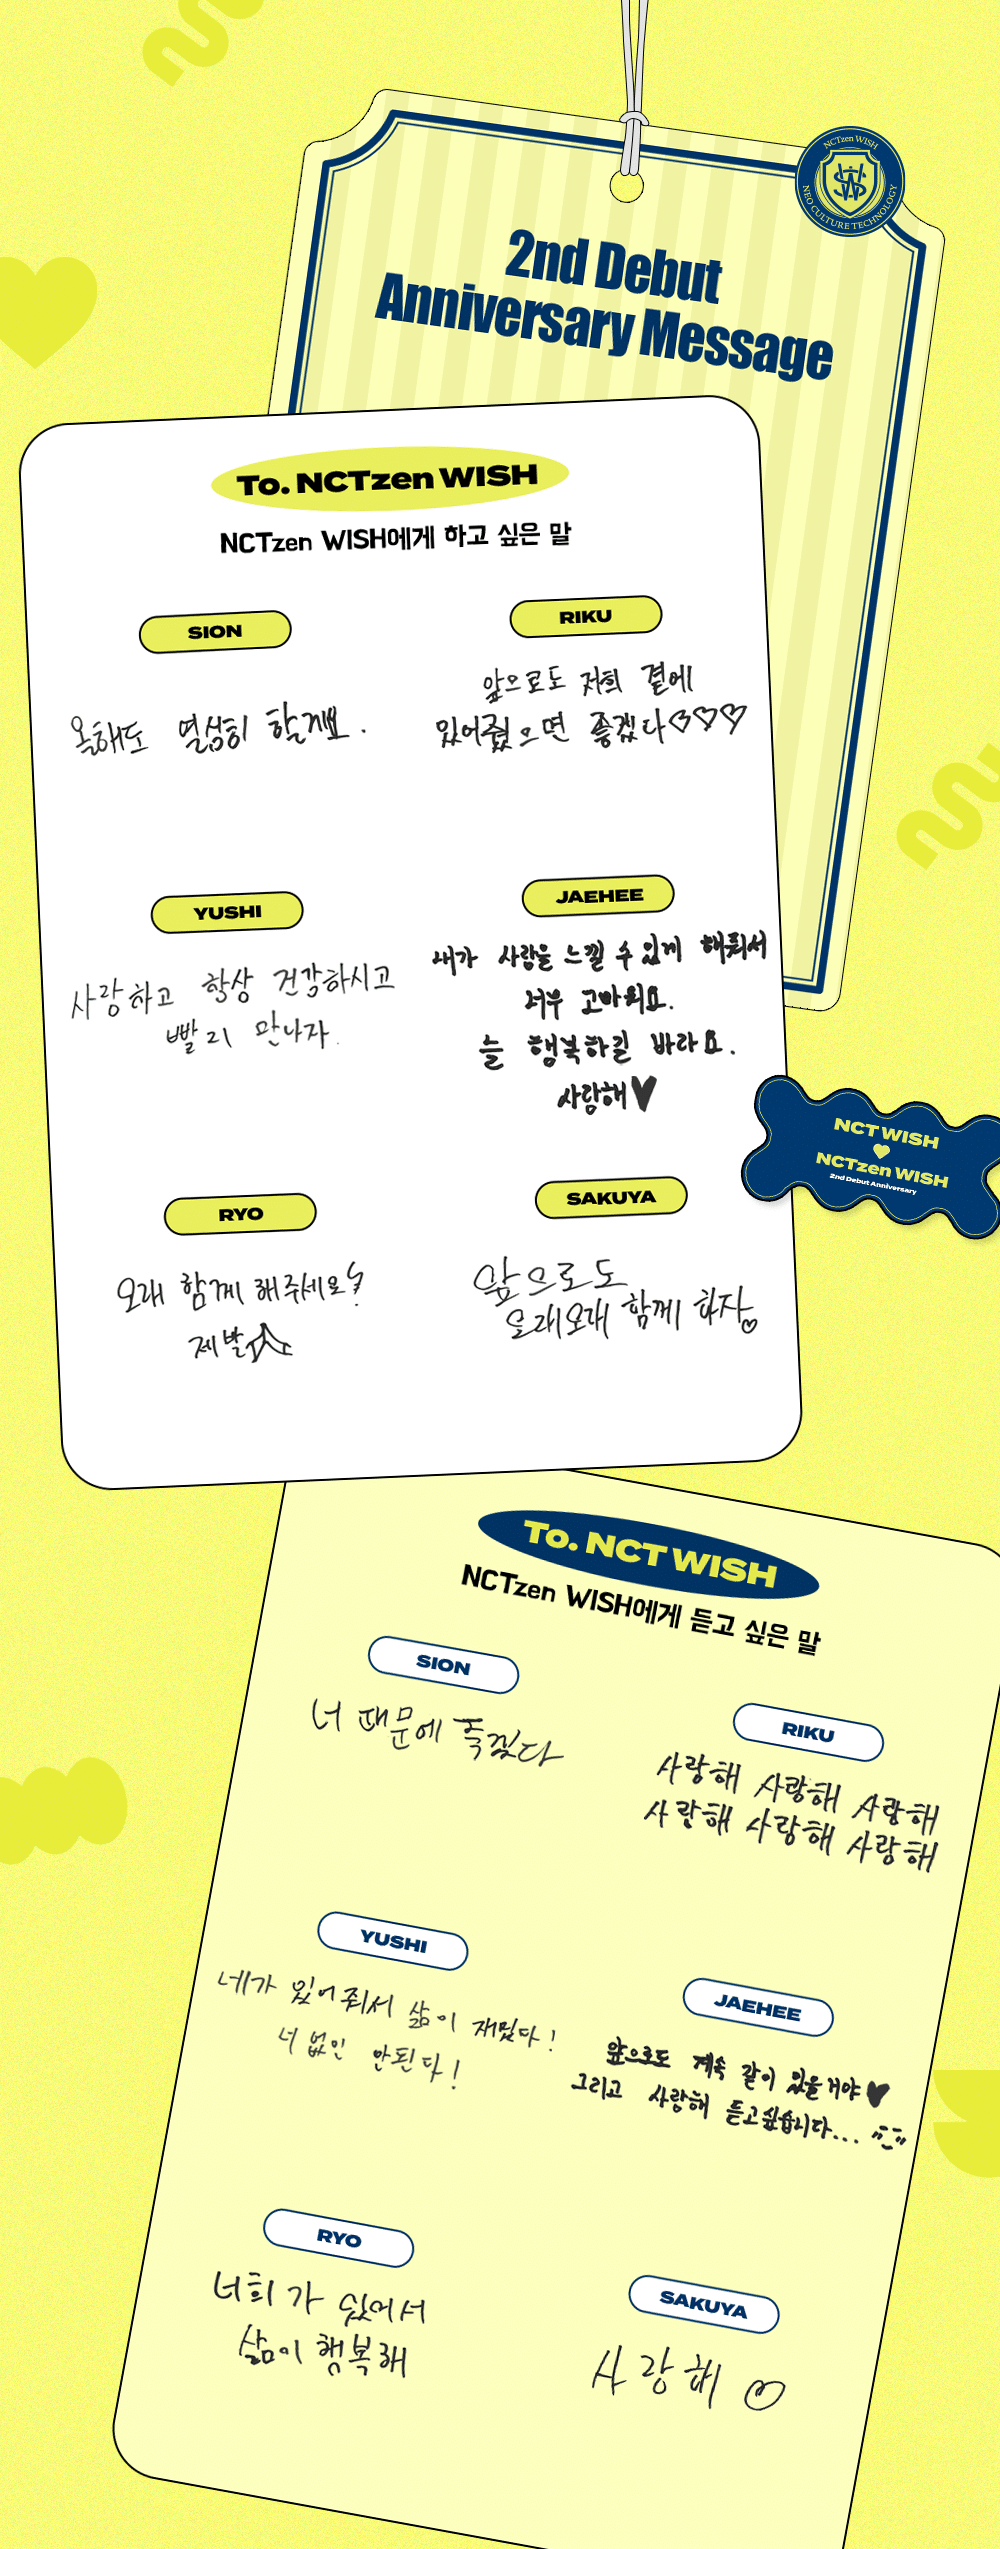 NCTzen WISH
NEO CULTURE TECHNOLOGY
2nd Debut
Anniversary Message
To. NCTzen WISH
NCTzen WISH에게 하고 싶은 말
SION
올해도 열심히 할게요.
RIKU
앞으로도 저희 곁에
있어줬으면 좋겠다♡♡♡
YUSHI
사랑하고 항상 건강하시고
빨리 만나자.
JAEHEE
내가 사랑을 느낄 수 있게 해줘서
너무 고마워요.
늘 행복하길 바라요.
사랑해♥
NCT WISH
♥
NCTzen WISH
2nd Debut Anniversary
RYO
오래 함께 해주세요
제발
SAKUYA
앞으로도
오래오래 함께 하자♡
To. NCT WISH
NCTzen WISH에게 듣고 싶은 말
SION
너 때문에 독깼다
RIKU
사랑해 사랑해 사랑해
사랑해 사랑해 사랑해
YUSHI
네가 있어줘서 삶이 재밌다!
너 없인 안된다!
JAEHEE
앞으로도 계속 같이 있을거야♥
그리고 사랑해 듣고싶습니다...
RYO
너희가 있어서
삶이 행복해
SAKUYA
사랑해♡